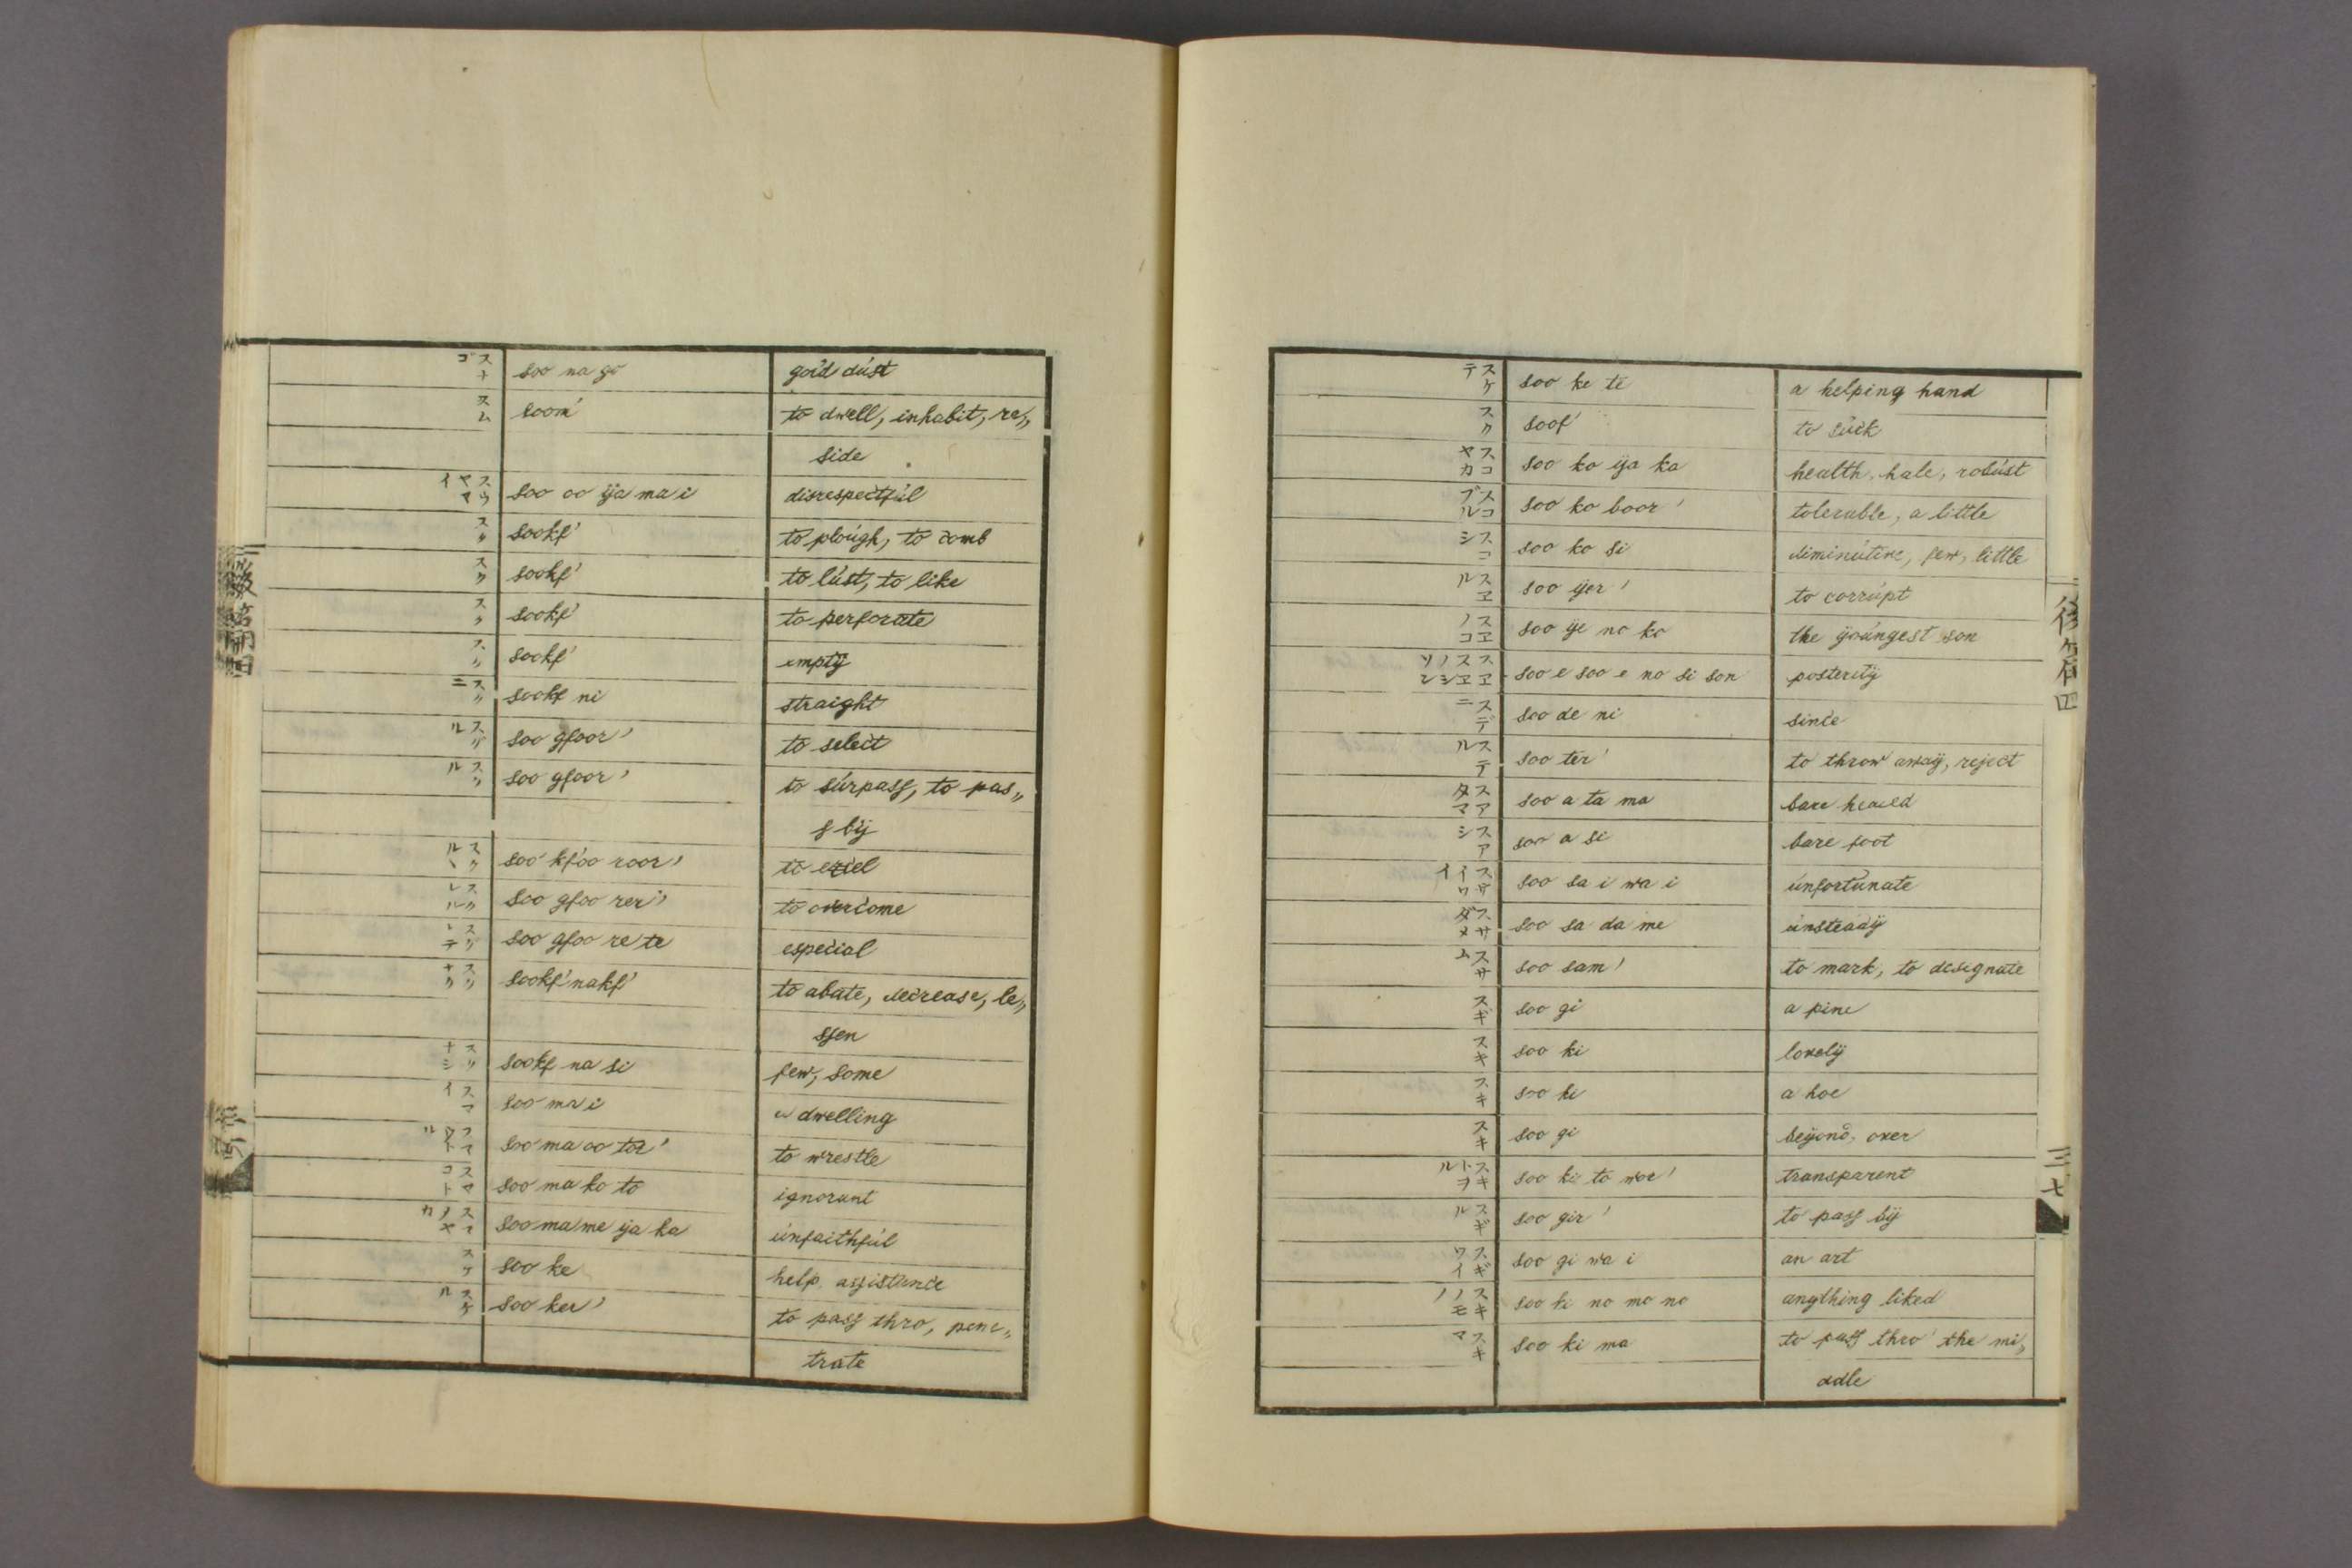 スナゴ soo na go gold dust
スム soom' to dwell, inhabit, re„
side
スウヤマイ soo oo ija ma i disrespectful
スク sookf' to plough, to comb
スク sookf' to lust, to like
スク sookf' to perforate
スク sookf' empty
スクニ sookf ni straight
スグル soo gfoor' to select
スグル soo gfoor' to surpass, to pas„
s by
スクヽル soo kfoo roor' to excel
スグルレ soo gfoo rer' to overcome
スグレテ soo gfoo re te especial
スクナク sookf' nakf' to abate, decrease, le„
ssen
スクナシ sookf na si few, some
スマイ soo ma i a dwelling
スマウトル soo ma oo tor' to wrestle
スマコト soo ma ko to ignorant
soo ma me ija ka unfaithful
スケ soo ke help. assistance
スケル soo ker' to pass thro, pene„
trate
スケテ soo ke te a helping hand
スフ soof' to suck
スコヤカ soo ko ija ka health, hale, robust
スコブル soo ko boor' tolerable, a little
スコシ soo ko si diminutive, few, little
スヱル soo ijer' to corrupt
スヱノコ soo ije no ko the youngest son
スヱスヱノシソン soo e soo e no si son posterity
スデニ soo de ni since
ステル soo ter' to throw away, reject
スアタマ soo a ta ma bare headed
スアシ soo a si bare foot
soo sa i wa i unfortunate
スサダメ soo sa da me unsteady
スサム soo sam' to mark, to designate
スギ soo gi a pine
スキ soo ki lovely
スキ soo ki a hoe
スキ soo gi beyond, over
スキトヲル soo ki to wor' transparent
スギル soo gir' to pass by
スギワイ soo gi wa i an art
スキノモノ soo ki no mo no anything liked
スキマ soo ki ma to pass thro' the mi„
ddle
三七